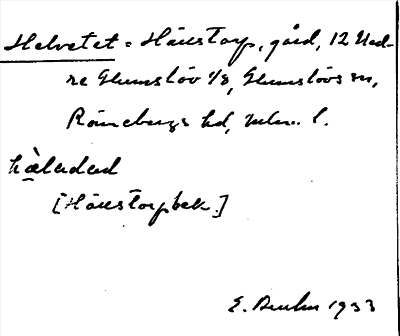 Helvetet = Häustorp, gård, 12 Ned-
re Glumslöv 1/8, Glumslövs sn,
Rönnebergs hd, Mlm. l.
hæ̀ladad
[Häustorpbek.]
E. 1933